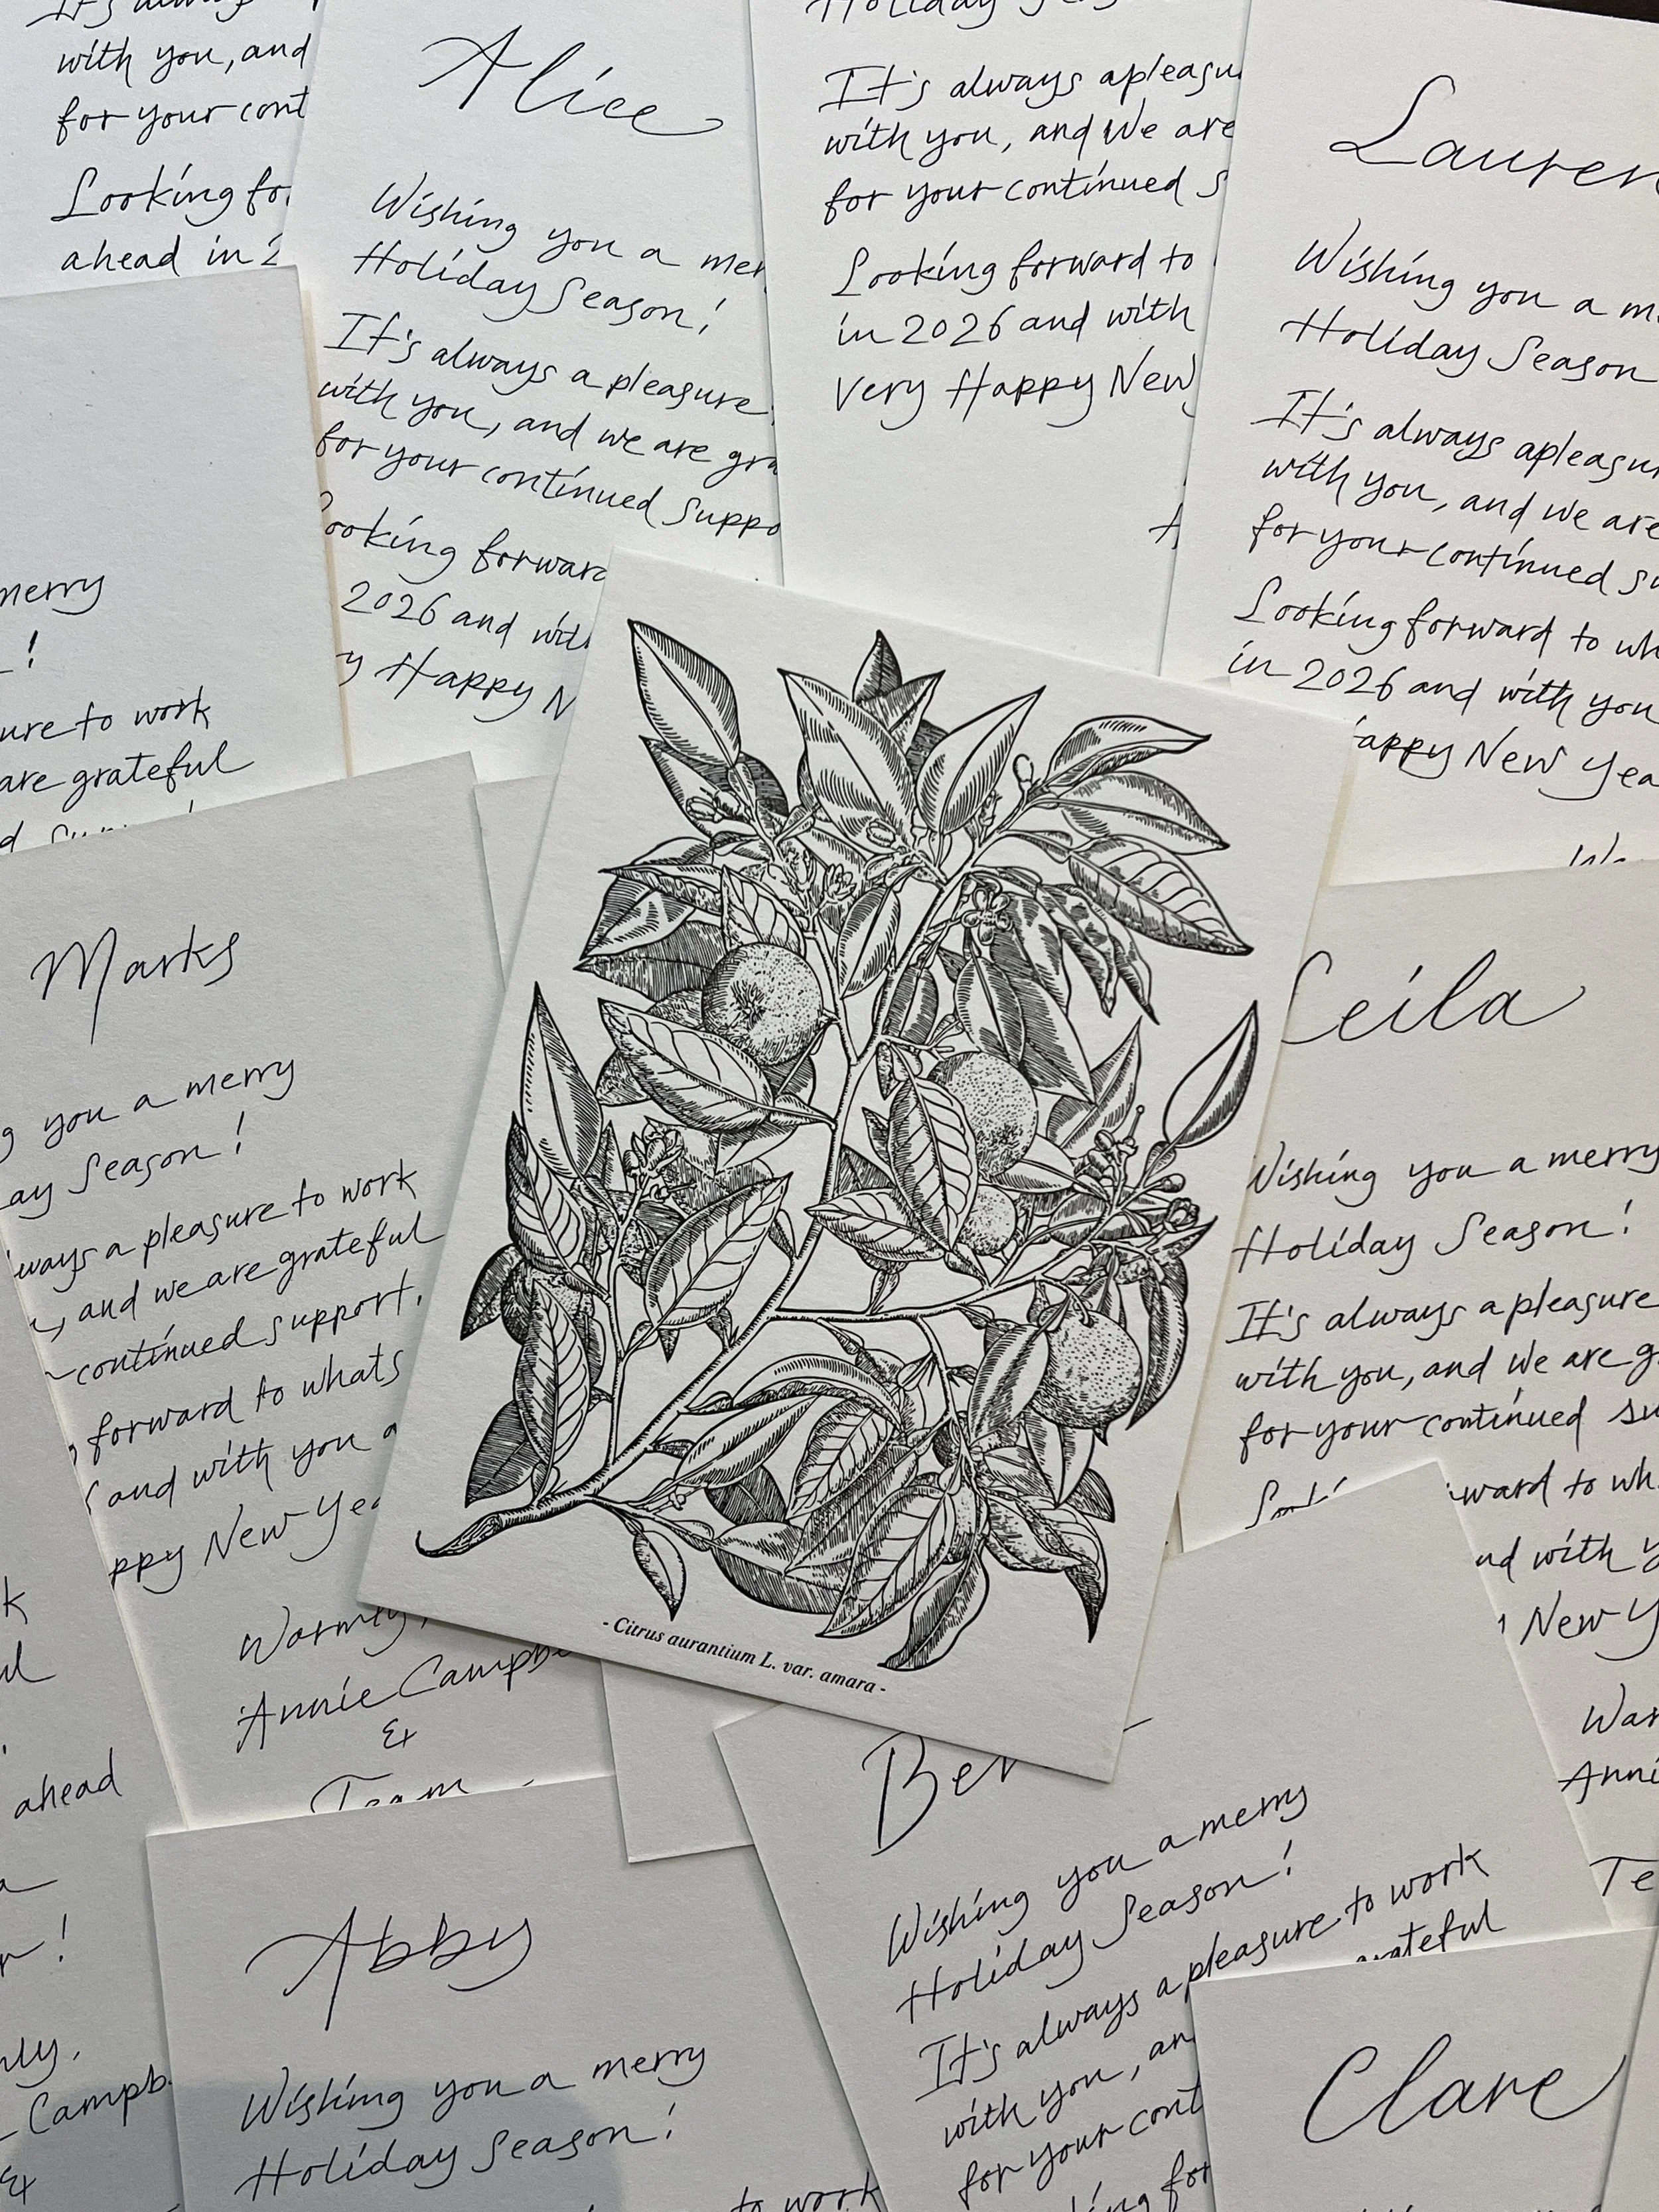 with you, and
for your cont
Looking for
ahead in 2
Alice
Wishing you a mer
Holiday Season!
It's always a pleasure
with you, and we are gra
for your continued suppo
ooking forward
2026 and with
y Happy N
Holiday
It's always a pleasu
with you, and we are
for your continued s
Looking forward to
in 2026 and with
very Happy New
Lauren
Wishing you a m
Holiday Season
It's always a pleasu
with you, and we are
for your continued su
Looking forward to wh
in 2026 and with you
appy New Yea
merry
!
ure to work
are grateful
Marks
g you a merry
ay Season!
ways a pleasure to work
, and we are grateful
continued support.
forward to whats
and with you a
ppy New Yea
Warmly,
Annie Campbe
&
Team
- Citrus aurantium L. var. amara -
Ceila
Wishing you a merry
Holiday Season!
It's always a pleasure
with you, and we are g
for your continued su
ward to wh
nd with y
New Y
War
Anni
Te
k
ul
ahead
!
nly,
Campb
&
Abby
Wishing you a merry
Holiday Season!
to work
Ber
Wishing you a merry
Holiday Season!
It's always a pleasure to work
grateful
with you, an
for your cont
ing for
Clare